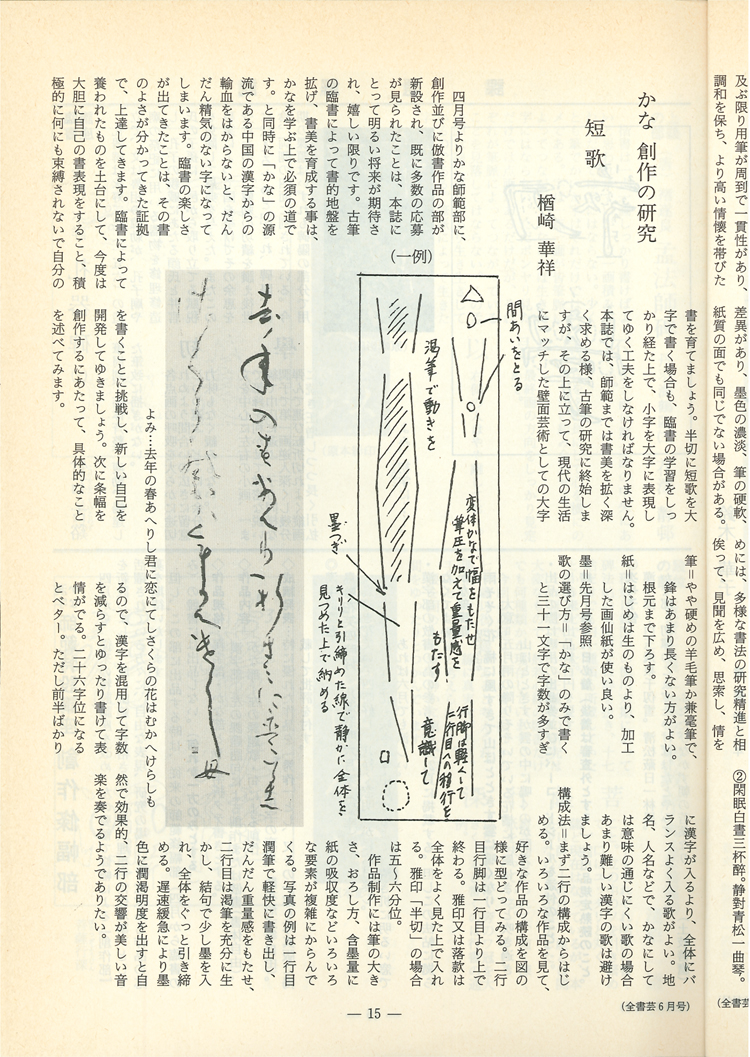 及ぶ限り用筆が周到で一貫性があり、
調和を保ち、より高い情懐を帯びた
差異があり、墨色の濃淡、筆の硬軟、
紙質の面でも同じでない場合がある。
めには、多様な書法の研究精進と相
俟って、見聞を広め、思索し、情を
②閑眠白晝三杯醉。静對青松一曲琴。
(全書芸
かな 創作の研究
短歌
楢崎 華祥
四月号よりかな師範部に、
創作並びに倣書作品の部が
新設され、既に多数の応募
が見られたことは、本誌に
とって明るい将来が期待さ
れ、嬉しい限りです。古筆
の臨書によって書的地盤を
拡げ、書美を育成する事は、
かなを学ぶ上で必須の道で
す。と同時に「かな」の源
流である中国の漢字からの
輸血をはからないと、だん
だん精気のない字になって
しまいます。臨書の楽しさ
が出てきたことは、その書
のよさが分かってきた証拠
で、上達してきます。臨書によって
養われたものを土台にして、今度は
大胆に自己の書表現をすること、積
極的に何にも束縛されないで自分の
書を育てましょう。半切に短歌を大
字で書く場合も、臨書の学習をしっ
かり経た上で、小字を大字に表現し
てゆく工夫をしなければなりません。
本誌では、師範までは書美を拡く深
く求める様、古筆の研究に終始しま
すが、その上に立って、現代の生活
にマッチした壁面芸術としての大字
を書くことに挑戦し、新しい自己を
開発してゆきましょう。次に条幅を
創作するにあたって、具体的なこと
を述べてみます。
(一例)
間あいをとる
渇筆で動きを
変体かなで幅をもたせ
筆圧を加えて重量感を
もたす
行脚は軽くして
二行目への移行を
意識して
墨つぎ
キリリと引締めた線で静かに全体を
見つめた上で納める
よみ…去年の春あへりし君に恋にてしさくらの花はむかへけらしも
筆＝やや硬めの羊毛筆か兼毫筆で、
鋒はあまり長くない方がよい。
根元まで下ろす。
紙＝はじめは生のものより、加工
した画仙紙が使い良い。
墨＝先月号参照
歌の選び方＝「かな」のみで書く
と三十一文字で字数が多すぎ
るので、漢字を混用して字数
を減らすとゆったり書けて表
情がでる。二十六字位になる
とベター。ただし前半ばかり
に漢字が入るより、全体にバ
ランスよく入る歌がよい。地
名、人名などで、かなにして
は意味の通じにくい歌の場合
あまり難しい漢字の歌は避け
ましょう。
構成法＝まず二行の構成からはじ
める。いろいろな作品を見て、
好きな作品の構成を図の
様に型どってみる。二行
目行脚は一行目より上で
終わる。雅印又は落款は
全体をよく見た上で入れ
る。雅印「半切」の場合
は五〜六分位。
作品制作には筆の大き
さ、おろし方、含墨量に
紙の吸収度などいろいろ
な要素が複雑にからんで
くる。写真の例は一行目
潤筆で軽快に書き出し、
だんだん重量感をもたせ、
二行目は渇筆を充分に生
かし、結句で少し墨を入
れ、全体をぐっと引き締
める。遅速緩急により墨
色に潤渇明度を出すと自
然で効果的、二行の交響が美しい音
楽を奏でるようでありたい。
(全書芸6月号)
— 15 —